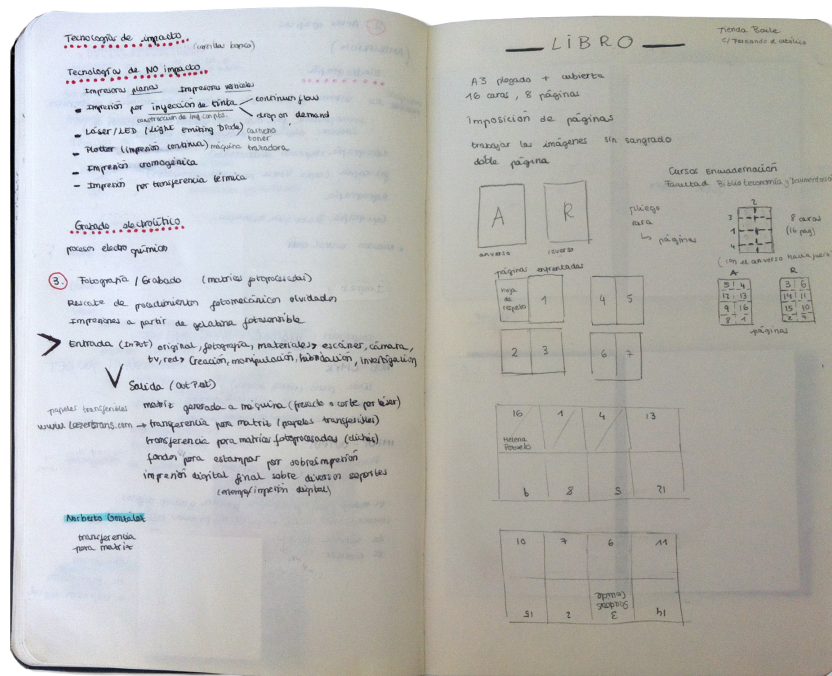 Tecnologías de impacto
Tecnologías de NO impacto
Impresoras planas Impresoras
- Impresión por inyección de tinta
continuum flow
drop on demand
- Láser/LED (Light Emiting Diode) cartucho
toner
- Plotter (impresión continua) máquina trotadora
- Impresión cromogénica
- Impresión por transferencia térmica
Grabado electrolítico
procesos electro químicos
3. Fotografía / Grabado (matrices fotoprocesadas)
Rescate de procedimientos fotomecánicos olvidados
Impresiones a partir de gelatina fotosensible
> Entrada (InPut) original, fotografía, materiales > escáner, cámara,
tv, red > Creación, manipulación, hibridación, investigación
V Salida (OutPut)
matriz generada a máquina (fresado o corte por láser)
papeles transferibles
www.lazertrans.com → transferencia para matriz / papeles transferibles
transferencia para matrices fotoprocesadas (clichés)
fondos para estampar por sobreimpresión
impresión digital final sobre diversos soportes
Norberto González
transferencia
para matriz
LIBRO
Tienda
c/ Fernando el católico
A3 plegado + cubierta
16 caras, 8 páginas
Imposición de páginas
trabajar las imágenes sin sangrado
doble página
Cursos Encuadernación
Facultad Biblioteconomía y Documentación
A R
anverso reverso
pliego
cara
↳ páginas
2
3
1
4
8 caras
(16 pag)
A R
5 4 3 6
12 13 14 11
9 16 15 10
8 1 2 7
páginas
páginas enfrentadas
hoja
de
respeto
1 4 5
2 3 6 7
16 1 4 13
Helena
9 8 5 12
10 7 6 11
15 2 3 14